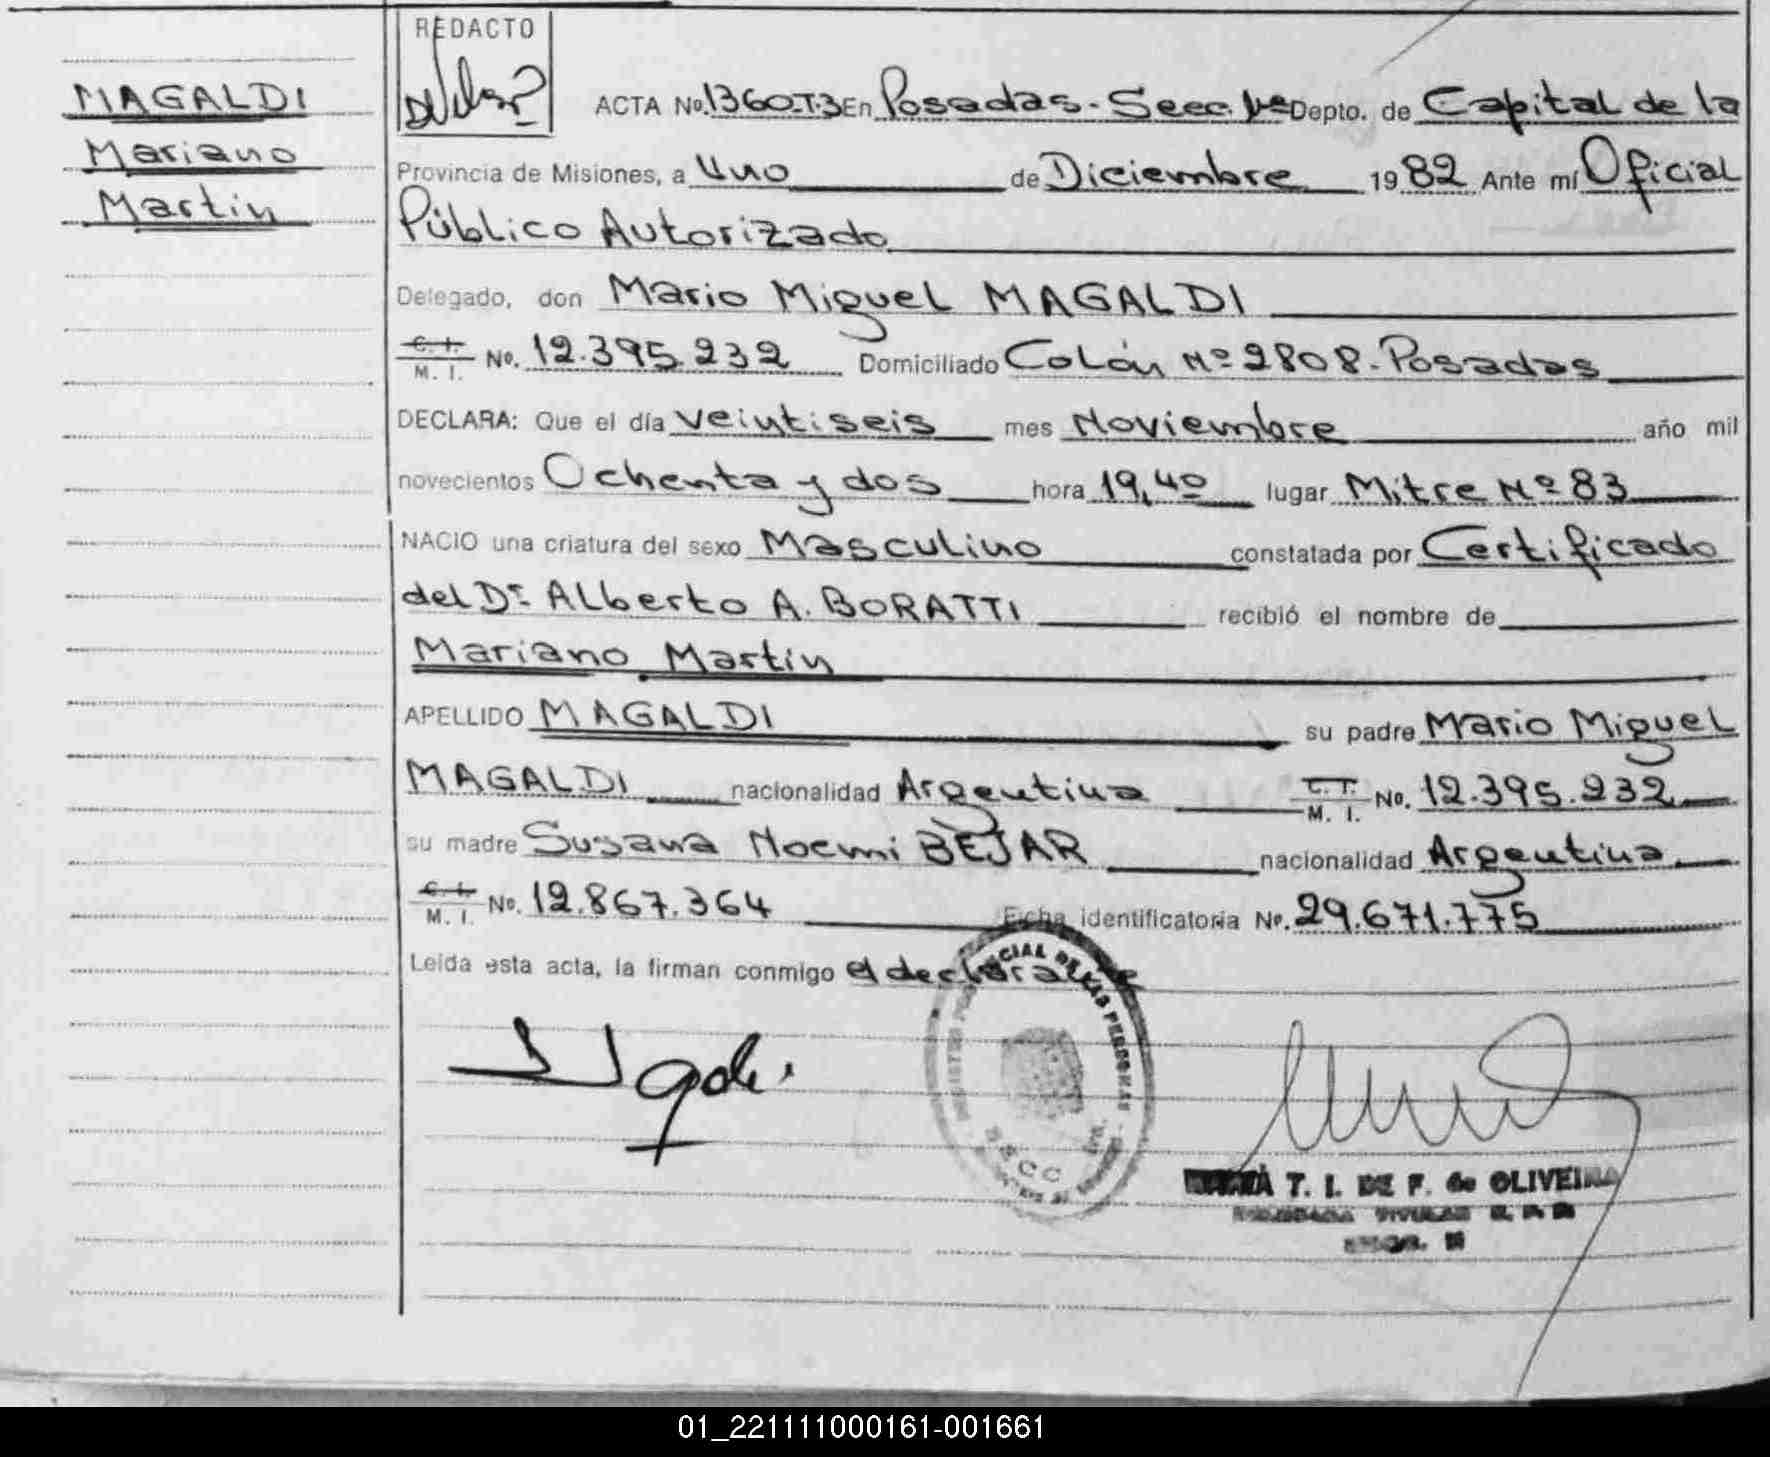 REDACTO
MAGALDI
Mariano
Martin
ACTA No. 1360.T.3 En Posadas - Secc. 1ª Depto. de Capital de la
Provincia de Misiones, a Uno de Diciembre 1982 Ante mí Oficial
Público Autorizado
Delegado, don Mario Miguel MAGALDI
C. I. M. I. No. 12.395.232 Domiciliado Colón Nº 2808 - Posadas
DECLARA: Que el día veintiseis mes Noviembre año mil
novecientos Ochenta y dos hora 19,40 lugar Mitre Nº 83
NACIO una criatura del sexo Masculino constatada por Certificado
del Dr. Alberto A. BORATTI recibió el nombre de
Mariano Martin
APELLIDO MAGALDI su padre Mario Miguel
MAGALDI nacionalidad Argentina C. I. M. I. No. 12.395.232
su madre Susana Noemi BEJAR nacionalidad Argentina
C. I. M. I. No. 12.867.364 Ficha identificatoria No. 29.671.775
Leída esta acta, la firman conmigo el declarante
DE LAS PERSONAS
SECC 1ra.
T. I. DE F. de OLIVEIRA
TITULAR
01_221111000161-001661